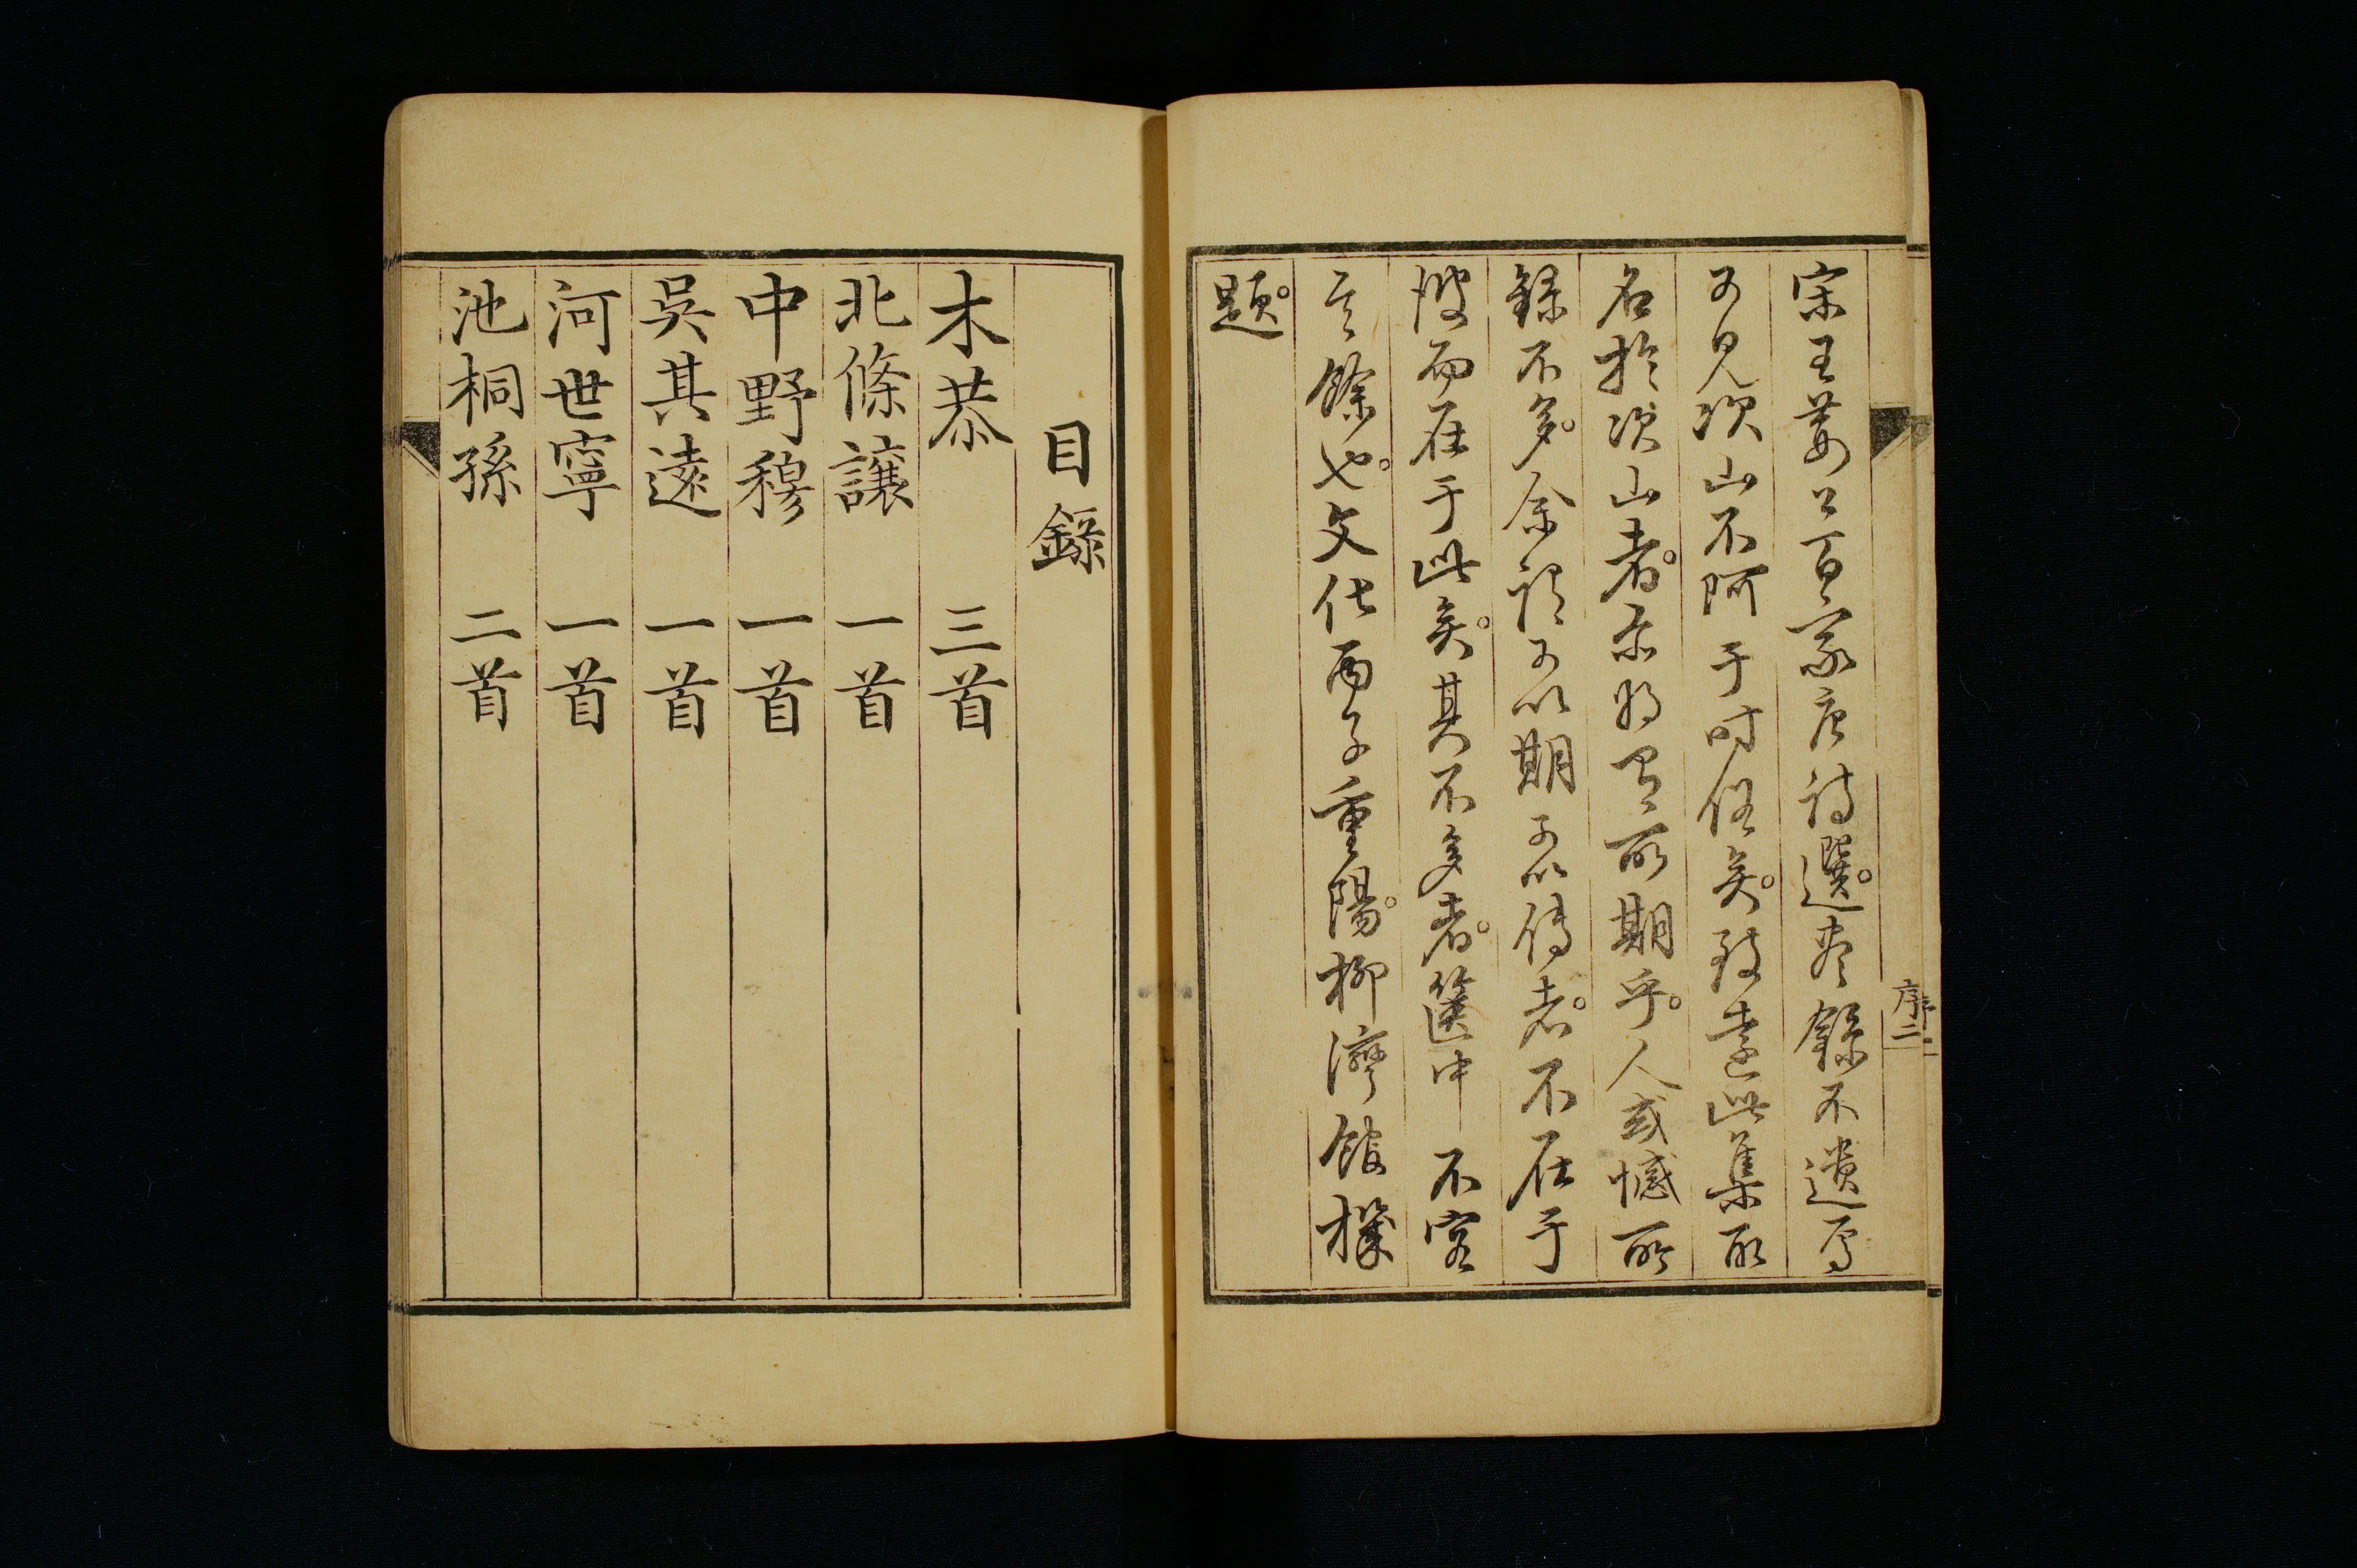 宋王荊公百家唐詩選。錄不遺焉
可見次山不阿于時俗矣。致遠此集所
名於次山者。亦將有所期乎。人或憾所
錄不多。余謂可以期可以傳者。不在于
彼而在于此矣。其不多者。篋中不容
其餘也。文化丙子重陽。柳灣館機
題。
序二
目錄
木恭 三首
北條讓 一首
中野穆 一首
吳其遠 一首
河世寧 一首
池桐孫 二首